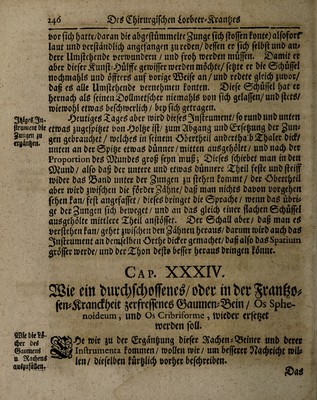 246 Des Chirurgischen Lorbeer-Krantzes
vor sich hatte/ daran die abgestümmelte Zunge sich stossen konte/ alsofort
laut und verständlich angefangen zu reden/ dessen er sich selbst und an-
dere Umstehende verwundern/ und froh werden müssen. Damit er
aber dieser Kunst-Hülffe gewisser werden möchte/ setzte er die Schüssel
nochmahls und öffters auf vorige Weise an/ und redete gleich zuvor/
daß es alle Umstehende vernehmen konten. Diese Schüssel hat er
hernach als seinen Dollmetscher niemahls von sich gelassen/ und stets/
wiewohl etwas beschwerlich/ bey sich getragen.
Itziges In-
strument die
Zungen zu
ergäntzen.
Heutiges Tages aber wird dieses Instrument/ so rund und unten
etwas zugespitzet von Holtze ist/ zum Abgang und Ersetzung der Zun-
gen gebrauchet/ welches in seinem Obertheil anderthalb Thaler dick/
unten an der Spitze etwas dünner/ mitten ausgehölet/ und nach der
Proportion des Mundes groß seyn muß; Dieses schiebet man in den
Mund/ also daß der untere und etwas dünnere Theil feste und steiff
wider das Band unter der Zungen zu stehen kommet/ der Obertheil
aber wird zwischen die förder Zähne/ daß man nichts davon vorgehen
sehen kan/ fest angefasset/ dieses bringet die Sprache/ wenn das übri-
ge der Zungen sich beweget/ und an das gleich einer flachen Schüssel
ausgehölte mittlere Theil anstösset. Der Schall aber/ daß man es
verstehen kan/ gehet zwischen den Zähnen heraus/ darum wird auch das
Instrument an demselben Orthe dicker gemachet/ daß also das Spatium
grösser werde/ und der Thon desto besser heraus bringen könne.
CAP. XXXIV.
Wie ein durchschossenes/ oder in der Frantzo-
sen-Kranckheit zerfressenes Gaumen-Bein/ Os Sphe-
noideum, und Os Cribriforme, wieder ersetzet
werden soll.
Wie die Lö-
cher des
Gaumens
u. Rachens
auszufüllen.
EHe wir zu der Ergäntzung dieser Rachen-Beiner und derer
Instrumenta kommen/ wollen wir/ um besserer Nachricht wil-
len/ dieselben kürtzlich vorher beschreiben.
Das